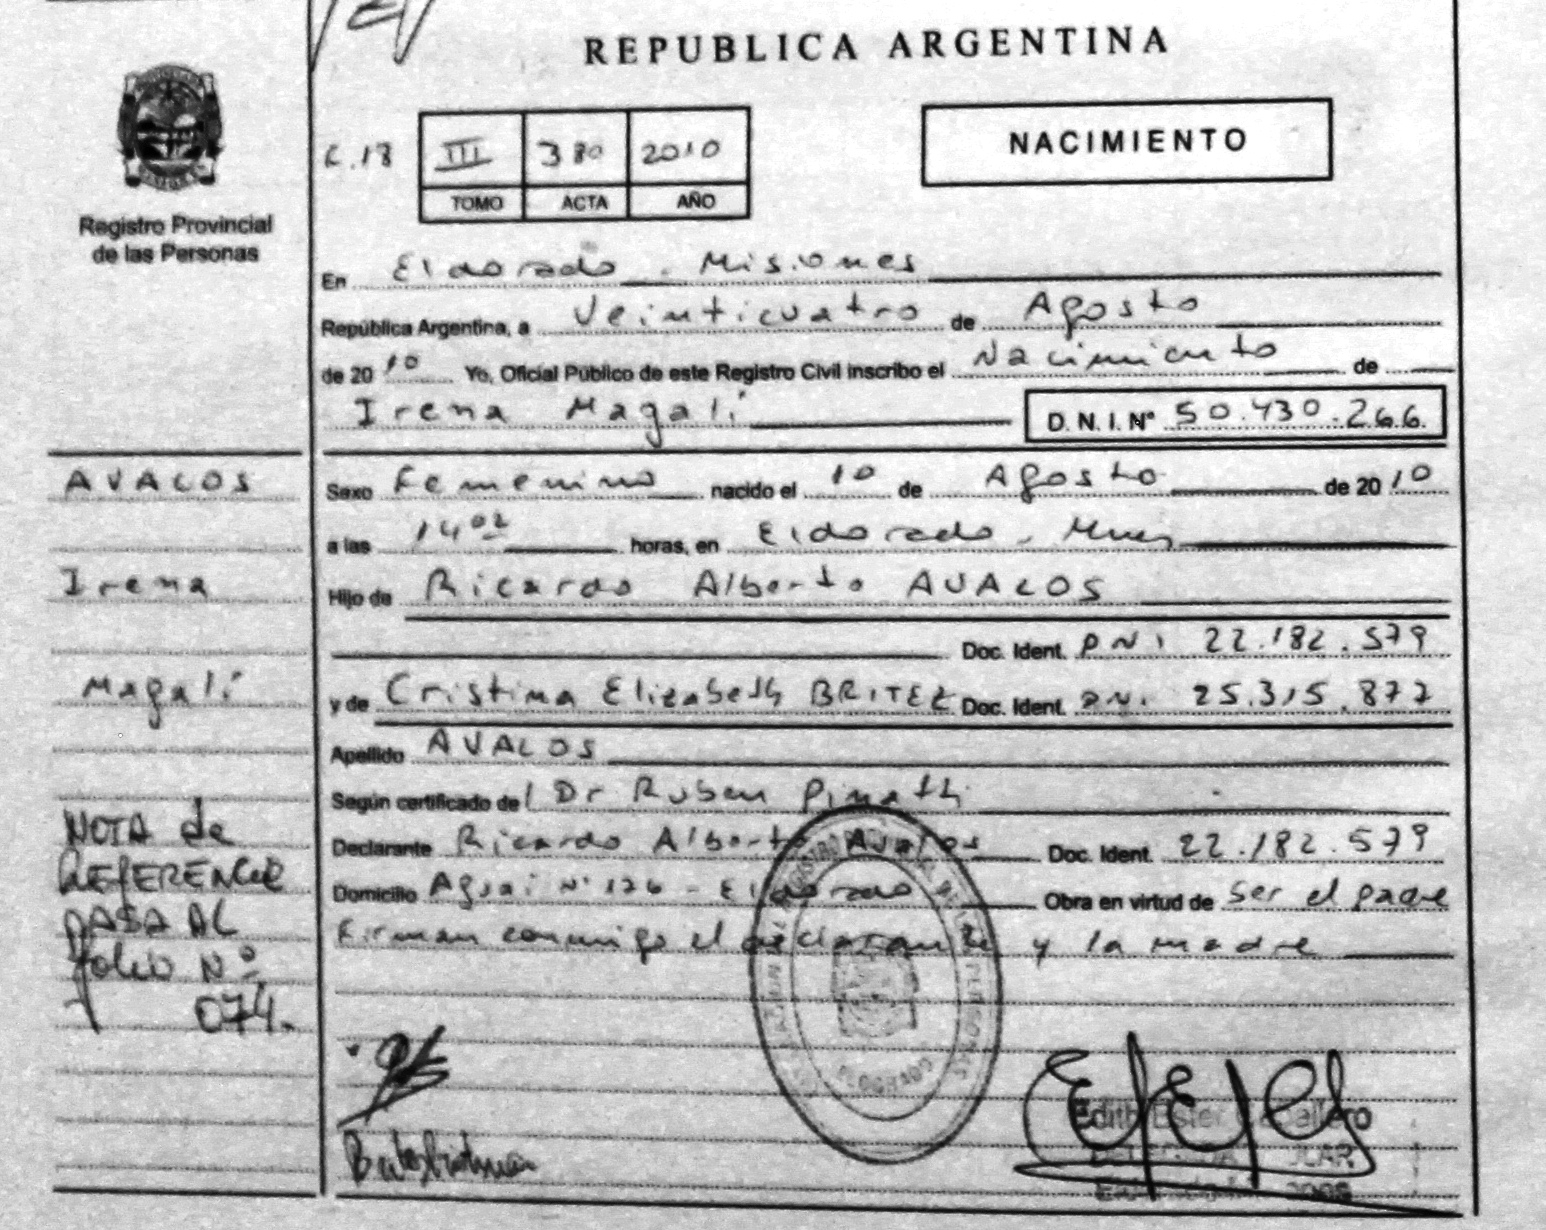 REPUBLICA ARGENTINA
NACIMIENTO
III 380 2010
TOMO ACTA AÑO
Registro Provincial
de las Personas
En Eldorado - Misiones
República Argentina, a Veinticuatro de Agosto
de 2010 Yo, Oficial Público de este Registro Civil inscribo el Nacimiento de
Irena Magalí D. N. I. Nº 50.430.266.
Sexo Femenino nacido el 10 de Agosto de 2010
a las 14 02 horas, en Eldorado - Mnes
Hijo de Ricardo Alberto AVALOS
Doc. Ident. DNI 22.182.579
y de Cristina Elizabeth BRITEZ Doc. Ident. DNI 25.315.877
Apellido AVALOS
Según certificado del Dr Ruben
Declarante Ricardo Alberto Avalos Doc. Ident. 22.182.579
Domicilio Aguaí Nº 126 - Eldorado Obra en virtud de ser el padre
Firman conmigo el declarante y la madre
AVALOS
Irena
Magalí
NOTA de
REFERENCIA
PASA AL
folio Nº
074.
ELDORADO
Edith Ester Caballero